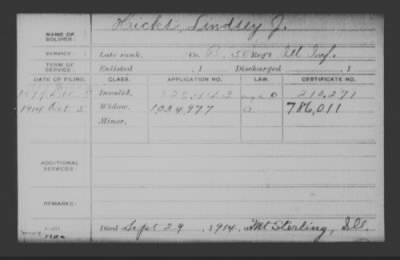 NAME OF SOLDIER: Hicks, Lindsey J.
SERVICE: Late rank, Co. B, 50 Reg't Ill Inf.
TERM OF SERVICE: Enlisted , 1 Discharged , 1
DATE OF FILING. CLASS. APPLICATION NO. LAW. CERTIFICATE NO.
Invalid. 210,271
1914 Oct 3 Widow. 1,034,977 786,011
Minor.
ADDITIONAL SERVICES:
REMARKS:
Died Sept 29, 1914, at Mt Sterling, Ills.